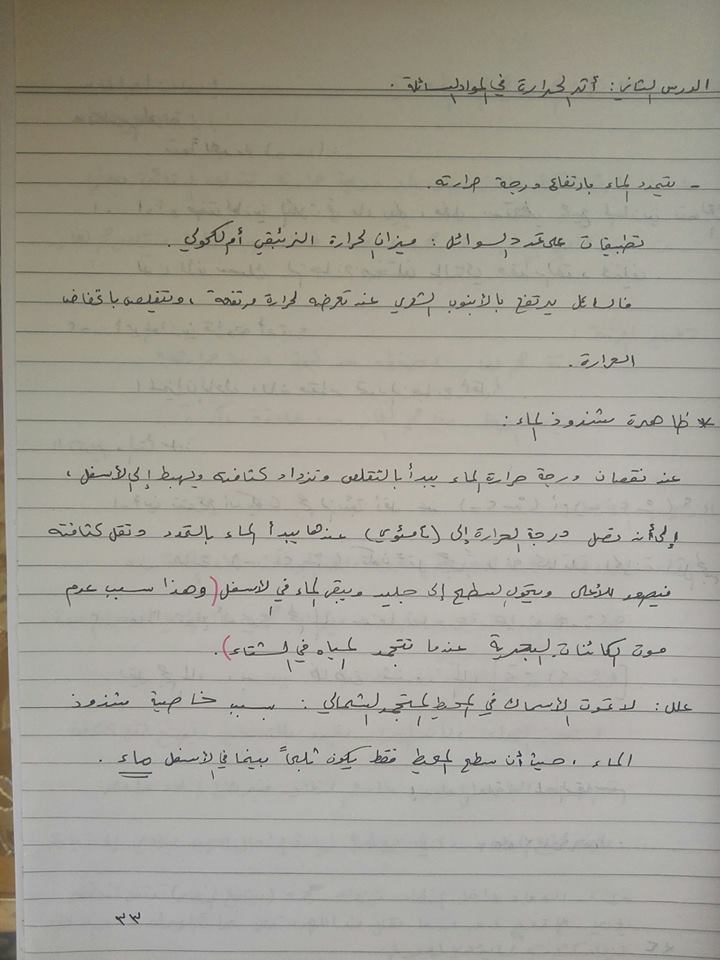 الدرس الثاني: أثر الحرارة في المواد السائلة .
- يتمدد الماء بارتفاع درجة حرارته.
تطبيقات على تمدد السوائل : ميزان الحرارة الزئبقي أم الكحولي .
فالسائل يرتفع بالأنبوب الشعري عند تعرضه لحرارة مرتفعة ، ويتقلص بانخفاض
الحرارة .
* ظاهرة شذوذ الماء :
عند نقصان درجة حرارة الماء يبدأ بالتقلص وتزداد كثافته ويهبط إلى الأسفل ،
إلى أن تصل درجة الحرارة إلى (٤ْ مئوي) عندها يبدأ الماء بالتمدد وتقل كثافته
فيصعد للأعلى ويتحول السطح إلى جليد ويبقى الماء في الأسفل (وهذا سبب عدم
موت الكائنات البحرية عندما تتجمد المياه في الشتاء).
علل : لا تموت الأسماك في المحيط المتجمد الشمالي : بسبب خاصية شذوذ
الماء ، حيث أن سطح المحيط فقط يكون ثلجاً بينما في الأسفل ماء .
٣٣